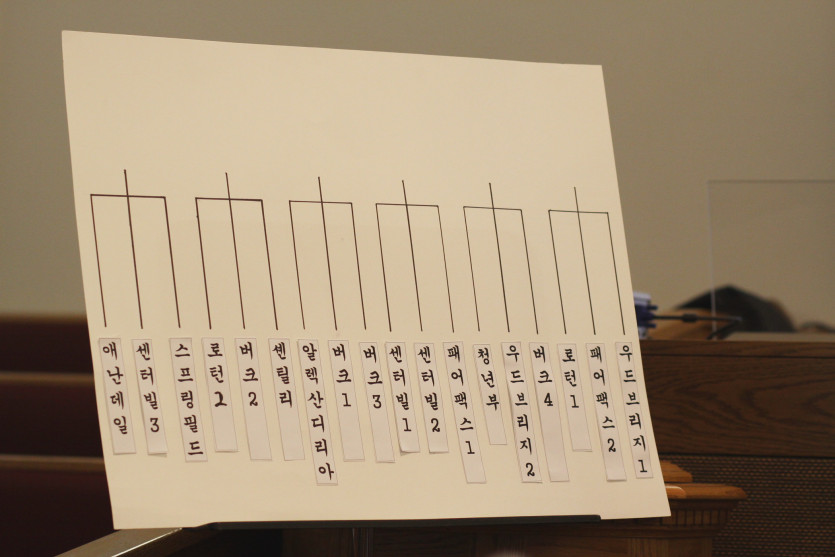 애난데일
센터빌3
스프링필드
로턴2
버크2
센틸리
알렉산디리아
버크1
버크3
센터빌1
센터빌2
패어팩스1
청년부
우드브리지2
버크4
로턴1
패어팩스2
우드브리지1